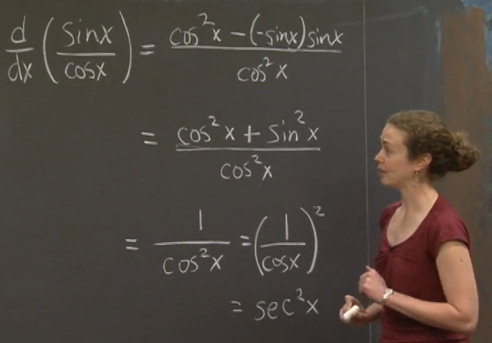 d/dx (sinx/cosx) = (cos²x - (-sinx)sinx)/cos²x
= (cos²x + sin²x)/cos²x
= 1/cos²x = (1/cosx)²
= sec²x